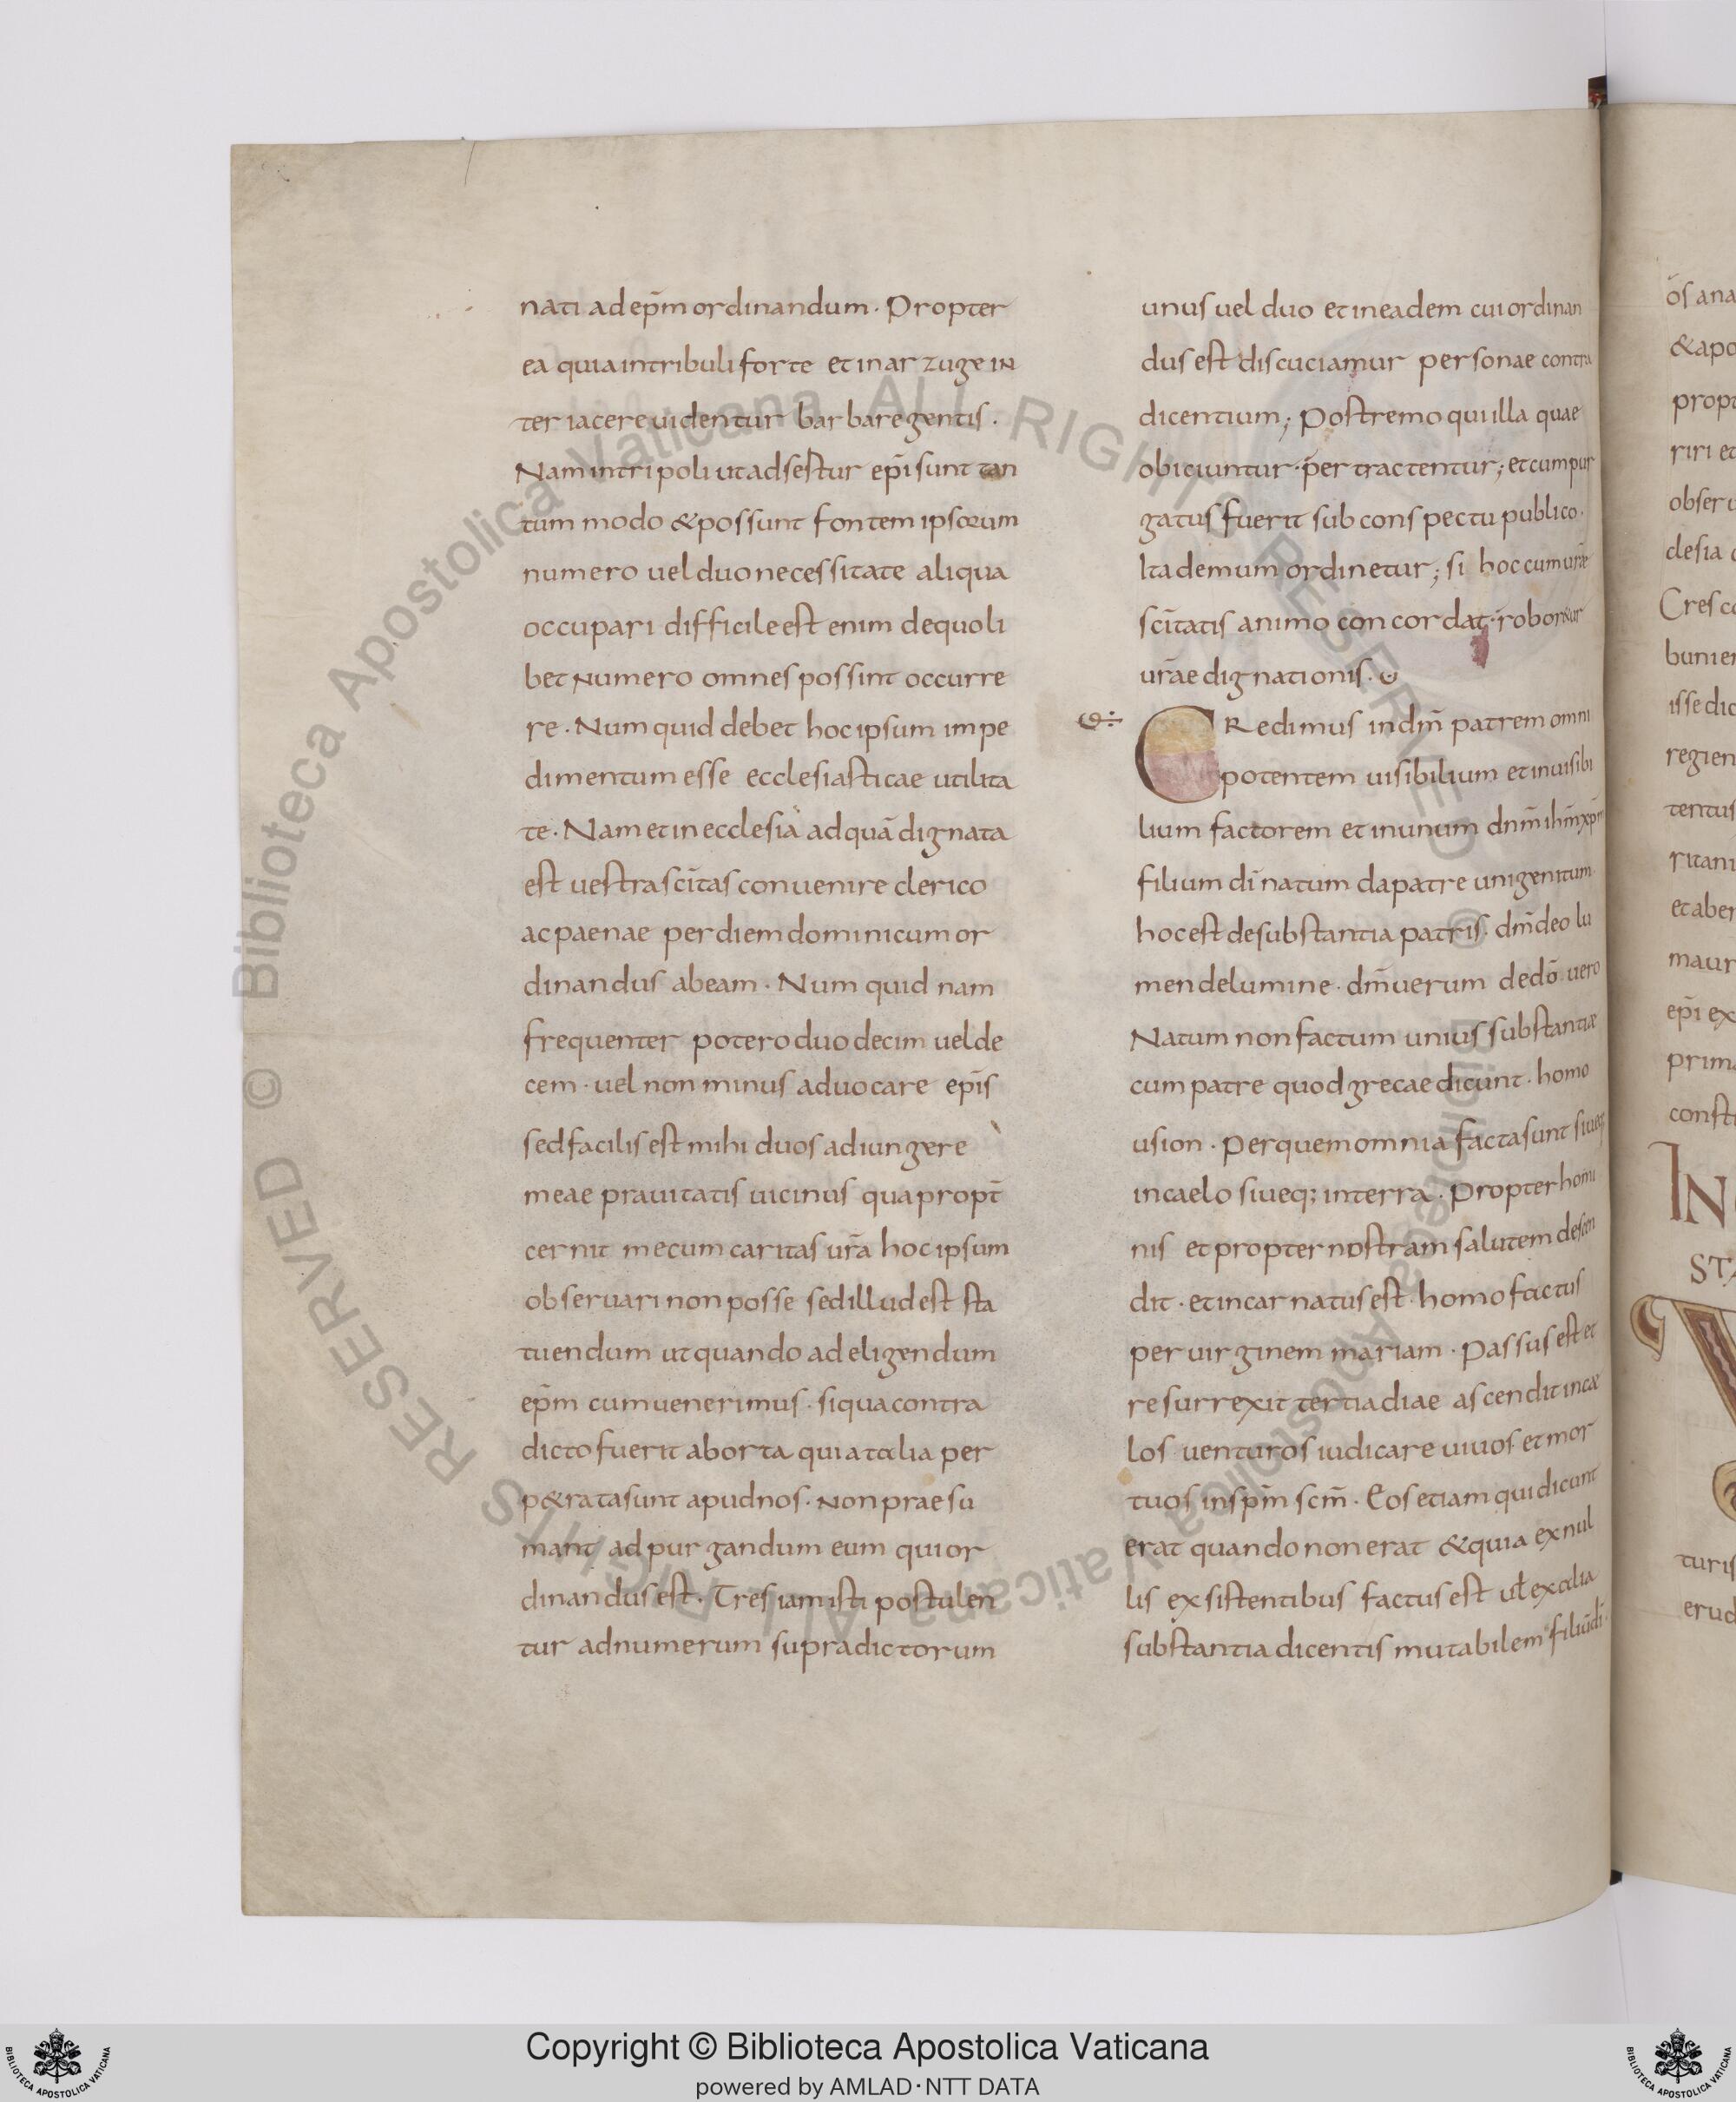 nati ad ep̄m ordinandum · Propter
ea quia in tribuli forte et in arzuge in
ter iacere uidentur barbare gentis ·
Nam in tripoli ut adsestur ep̄i sunt tan
tum modo & possunt fontem ipsorum
numero uel duo necessitate aliqua
occupari difficile est enim de quoli
bet numero omnes possint occurre
re · Num quid debet hoc ipsum impe
dimentum esse ecclesiasticae utilita
te · Nam et in ecclesia ad quā dignata
est uestra sc̄itas conuenire clerico
ac paenae per diem dominicum or
dinandus abeam · Num quid nam
frequenter potero duodecim uel de
cem · uel non minus aduocare ep̄is
sed facilis est mihi duos adiungere
meae prauitatis uicinus qua propt̄
cernit mecum caritas ur̄a hoc ipsum
obseruari non posse sed illud est sta
tuendum ut quando ad eligendum
ep̄m cum uenerimus · si qua contra
dicto fuerit aborta quia talia per
p&rata sunt apud nos · Non praesu
mant ad purgandum eum qui or
dinandus est · Tres iam isti postulen
tur ad numerum supradictorum
unus uel duo et in eadem cui ordinan
dus est discuciamur personae contra
dicentium; Postremo qui illa quae
obiciuntur · pertractentur; et cum pur
gatus fuerit sub conspectu publico ·
Ita demum ordinetur; si hoc cum ur̄ae
sc̄itatis animo concordat · robor&ur
ur̄ae dignationis ·
CRedimus in dm̄ patrem omni
potentem uisibilium et inuisibi
lium factorem et in unum dnm̄ ihm̄ xpm̄
filium dī natum da patre unigenitum
hoc est de substantia patris · dm̄ deo lu
men de lumine · dm̄ uerum de dō uero
Natum non factum unius substantiæ
cum patre quod grecae dicunt · homo
usion · Per quem omnia facta sunt siueq;
in caelo siueq; in terra · Propter homi
nis et propter nostram salutem descen
dit · et incarnatus est · homo factus
per uirginem mariam · Passus est et
resurrexit tertia diae ascendit in cæ
los uenturos iudicare uiuos et mor
tuos in sp̄m sc̄m · Eos etiam qui dicunt
erat quando non erat & quia ex nul
lis exsistentibus factus est ul̄ ex alia
substantia dicentis mutabilem filiū dī
Copyright © Biblioteca Apostolica Vaticana
powered by AMLAD·NTT DATA